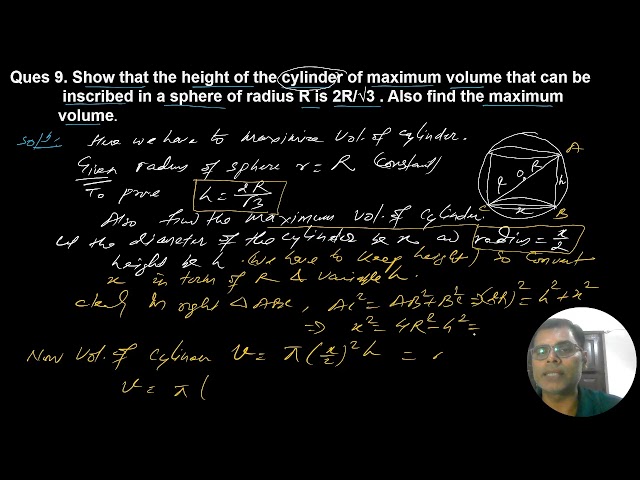 Ques 9. Show that the height of the cylinder of maximum volume that can be
inscribed in a sphere of radius R is 2R/√3 . Also find the maximum
volume.
Soln: Here we have to maximize vol. of cylinder.
Given radius of sphere r = R (constant)
To prove h = 2R/√3
Also find the maximum vol. of cylinder.
Let the diameter of the cylinder be x and radius = x/2
height be h. (we have to keep height) so convert
x in term of R & variable h.
In right △ ABC, AC² = AB² + B²C ⇒ (2R)² = h² + x²
⇒ x² = 4R² - h² =
Now vol. of cylinder V = π(x/2)² h =
V = π (
A
R
O
R
h
C
x
B